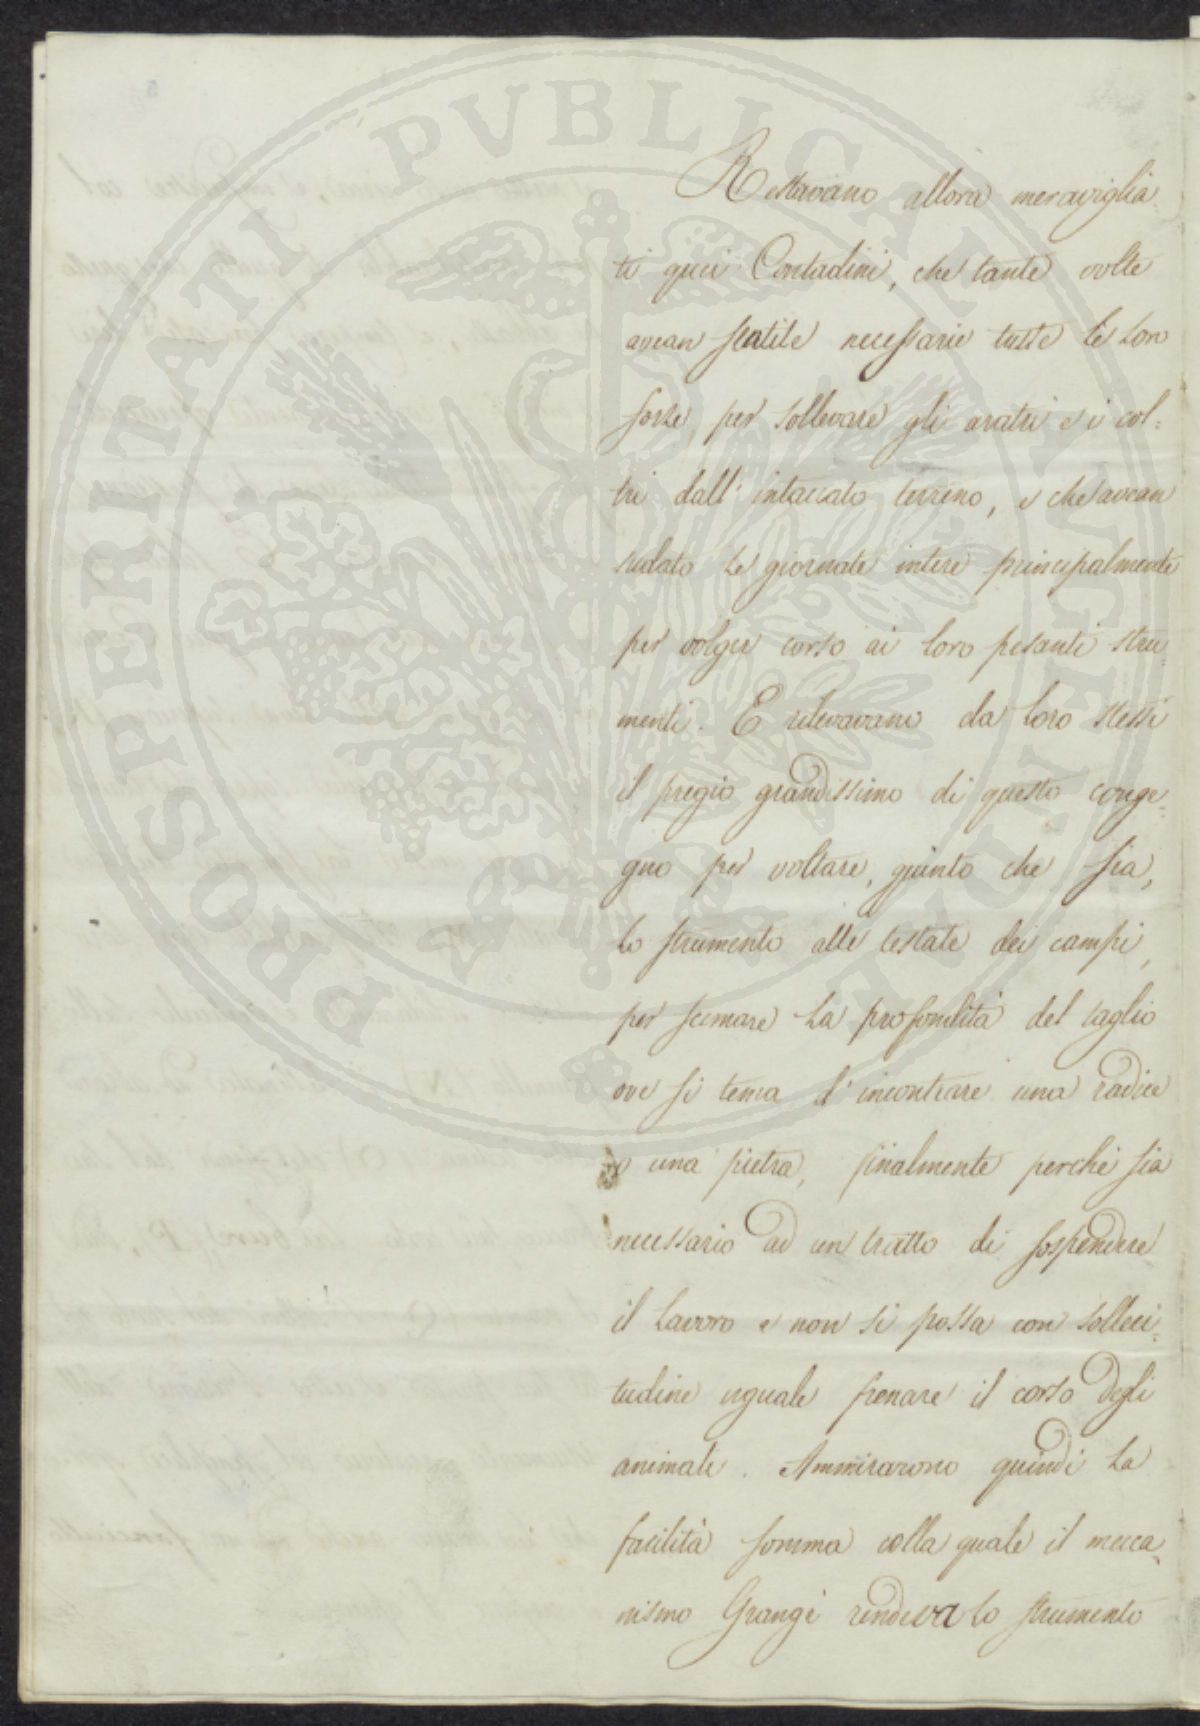 PROSPERITATI PVBLICAE AVGENDAE
Restavano allora meraviglia
ti quei Contadini, che tante volte
avean sentite necessarie tutte le loro
forze, per sollevare gli aratri e i col:
tri dall'intaccato terreno, e che avean
sudato le giornate intere principalmente
per volger corso ai loro pesanti stru:
menti. E rilevavano da loro stessi
il pregio grandissimo di questo conge:
gno per voltare, giunto che sia,
lo strumento alle testate dei campi,
per scemare la profondità del taglio
ove si tema l'incontrare una radice
o una pietra, finalmente perchè sia
necessario ad un tratto di sospendere
il lavoro e non si possa con solleci:
tudine uguale frenare il corso degli
animali. Ammirarono quindi la
facilità somma colla quale il mecca:
nismo Grangè rendeva lo strumento